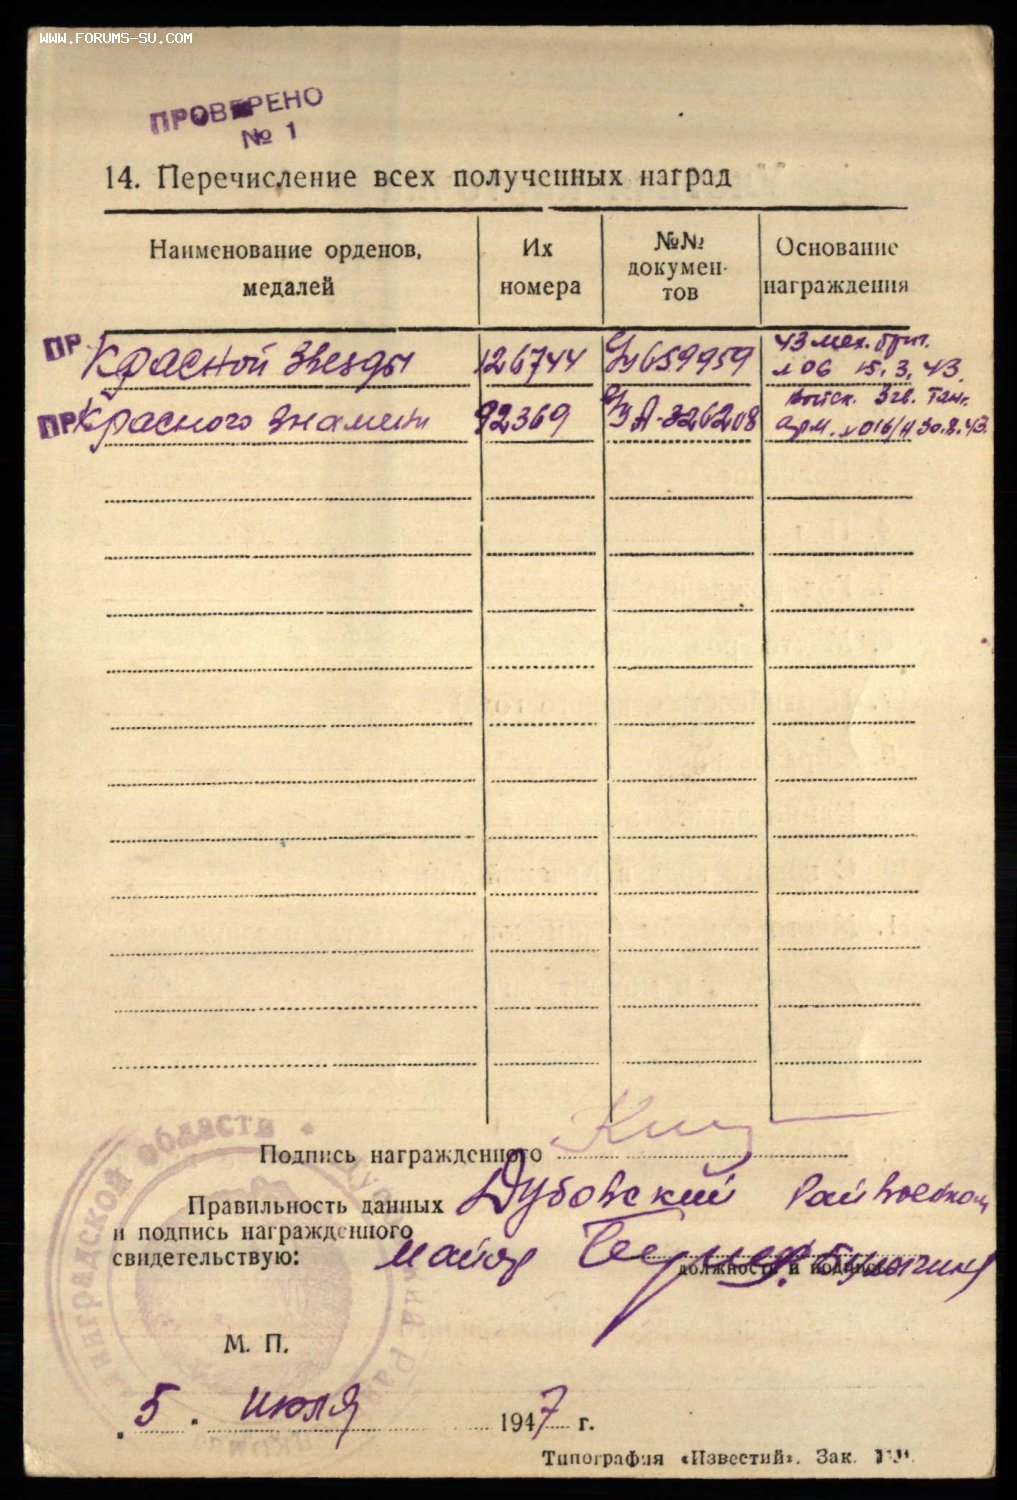 WWW.FORUMS-SU.COM
ПРОВЕРЕНО
№ 1
14. Перечисление всех полученных наград
Наименование орденов, медалей
Их номера
№№ докумен-тов
Основание награждения
ПР Красной Звезды 126744 659959 43 мех. бриг.
№06 15.3.43.
ПР Красного Знамени 92369 А-226208 войск. 3 гв. тан.
арм. №016/н 30.8.43.
Подпись награжденного
Правильность данных
и подпись награжденного
свидетельствую:
Дубовский Райвоенком
майор
должность и подпись
М. П.
5. июля 1947 г.
Типография «Известий». Зак.